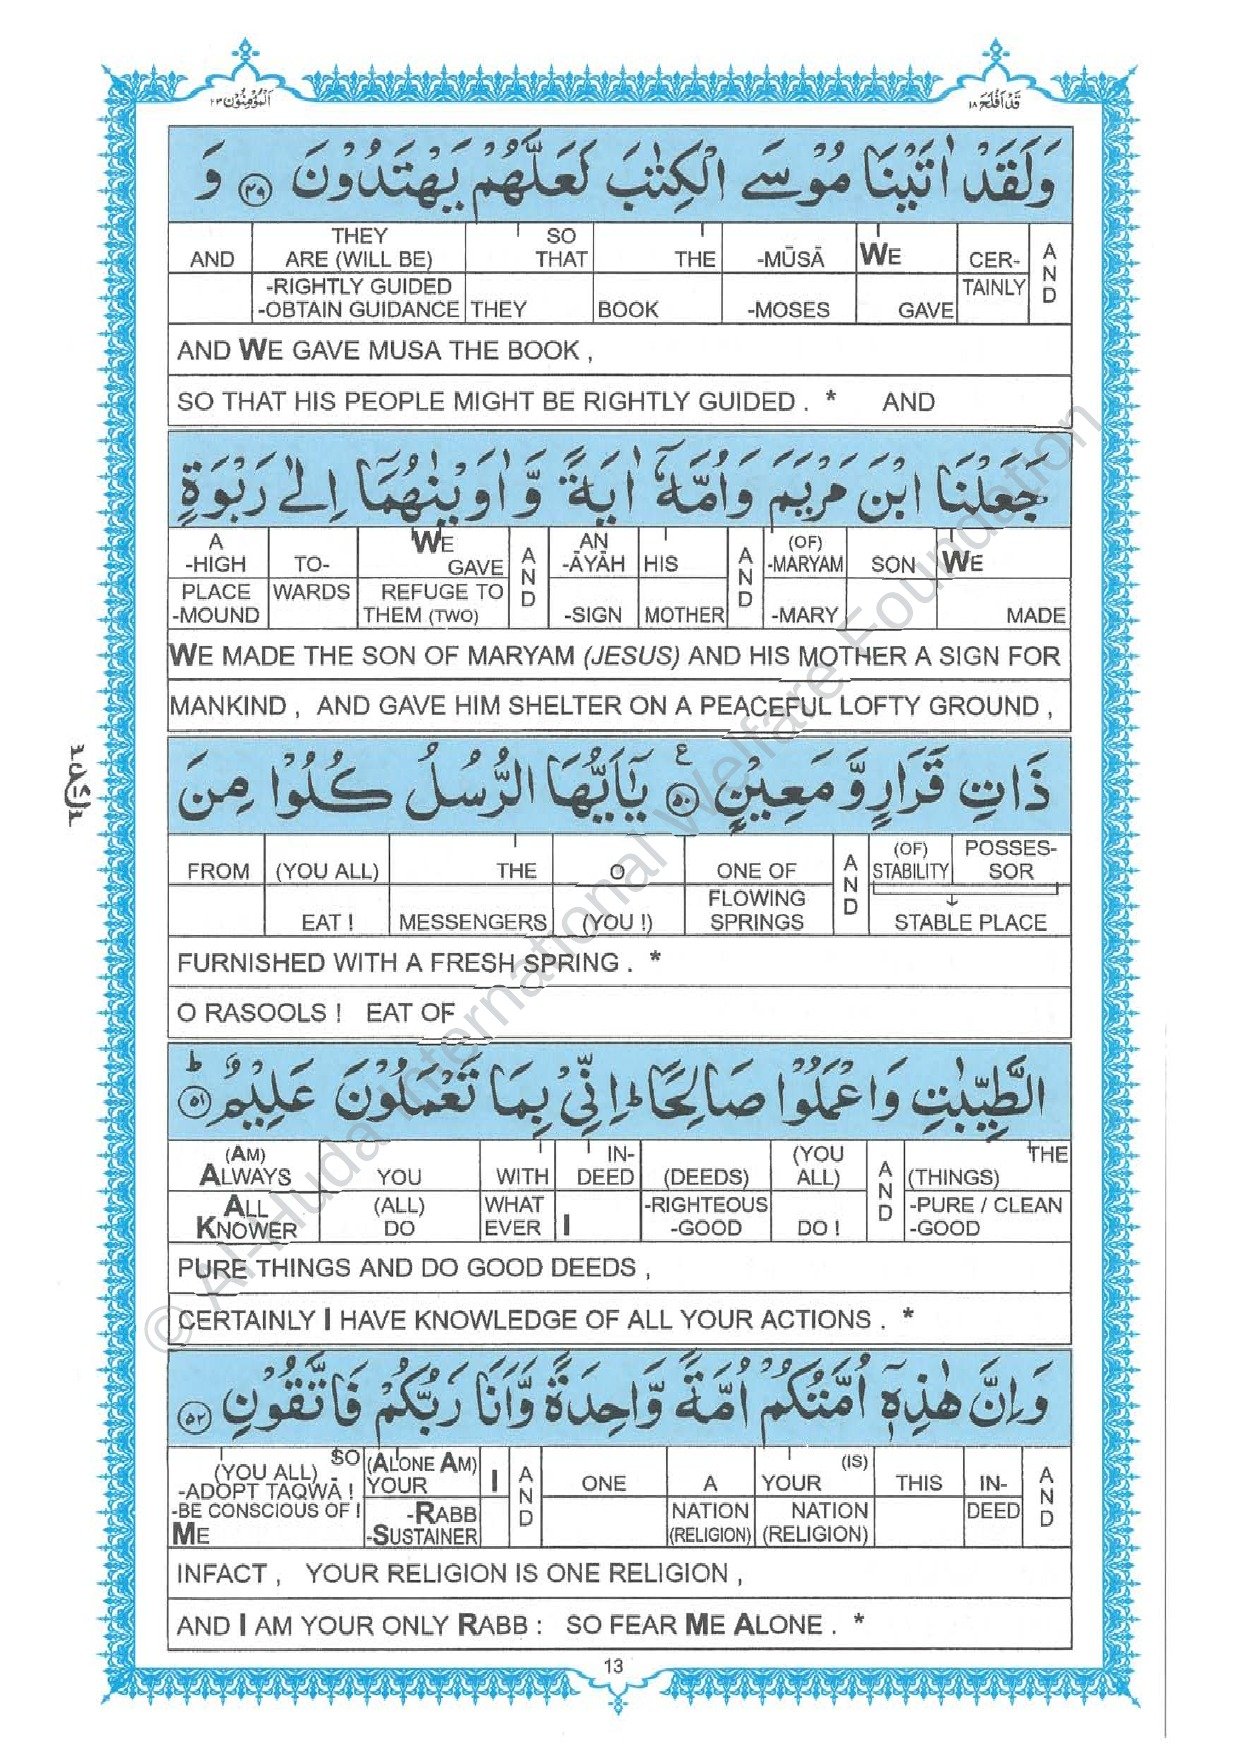 اَلْمُؤْمِنُوْن ٢٣
قَدْ اَفْلَحَ ١٨
وَلَقَدْ اٰتَيْنَا مُوْسَى الْكِتٰبَ لَعَلَّهُمْ يَهْتَدُوْنَ ﴿٤٩﴾ وَ
AND THEY ARE (WILL BE) SO THAT THE -MŪSĀ WE CER- AND
-RIGHTLY GUIDED -OBTAIN GUIDANCE THEY BOOK -MOSES GAVE TAINLY
AND WE GAVE MUSA THE BOOK ,
SO THAT HIS PEOPLE MIGHT BE RIGHTLY GUIDED . * AND
جَعَلْنَا ابْنَ مَرْيَمَ وَاُمَّهٗٓ اٰيَةً وَّاٰوَيْنٰهُمَآ اِلٰى رَبْوَةٍ
A -HIGH TO- WE GAVE AND AN -ĀYĀH HIS AND (OF) -MARYAM SON WE
PLACE -MOUND WARDS REFUGE TO THEM (TWO) -SIGN MOTHER -MARY MADE
WE MADE THE SON OF MARYAM (JESUS) AND HIS MOTHER A SIGN FOR
MANKIND , AND GAVE HIM SHELTER ON A PEACEFUL LOFTY GROUND ,
ذَاتِ قَرَارٍ وَّمَعِيْنٍ ﴿٥٠﴾ يٰٓاَيُّهَا الرُّسُلُ كُلُوْا مِنَ
ع
FROM (YOU ALL) THE O ONE OF AND (OF) STABILITY POSSES- SOR
EAT ! MESSENGERS (YOU !) FLOWING SPRINGS STABLE PLACE
FURNISHED WITH A FRESH SPRING . *
O RASOOLS ! EAT OF
الطَّيِّبٰتِ وَاعْمَلُوْا صَالِحًا ؕ اِنِّيْ بِمَا تَعْمَلُوْنَ عَلِيْمٌ ؕ ﴿٥١﴾
(AM) ALWAYS YOU WITH IN- DEED (DEEDS) (YOU ALL) AND THE (THINGS)
ALL KNOWER (ALL) DO WHAT EVER I -RIGHTEOUS -GOOD DO ! -PURE / CLEAN -GOOD
PURE THINGS AND DO GOOD DEEDS ,
CERTAINLY I HAVE KNOWLEDGE OF ALL YOUR ACTIONS . *
وَاِنَّ هٰذِهٖٓ اُمَّتُكُمْ اُمَّةً وَّاحِدَةً وَّاَنَا رَبُّكُمْ فَاتَّقُوْنِ ﴿٥٢﴾
SO (YOU ALL) -ADOPT TAQWĀ ! (ALONE AM) YOUR I AND ONE A YOUR (IS) THIS IN- AND
-BE CONSCIOUS OF ME -RABB -SUSTAINER NATION (RELIGION) NATION (RELIGION) DEED
INFACT , YOUR RELIGION IS ONE RELIGION ,
AND I AM YOUR ONLY RABB : SO FEAR ME ALONE . *
13
© Al-Huda International Welfare Foundation